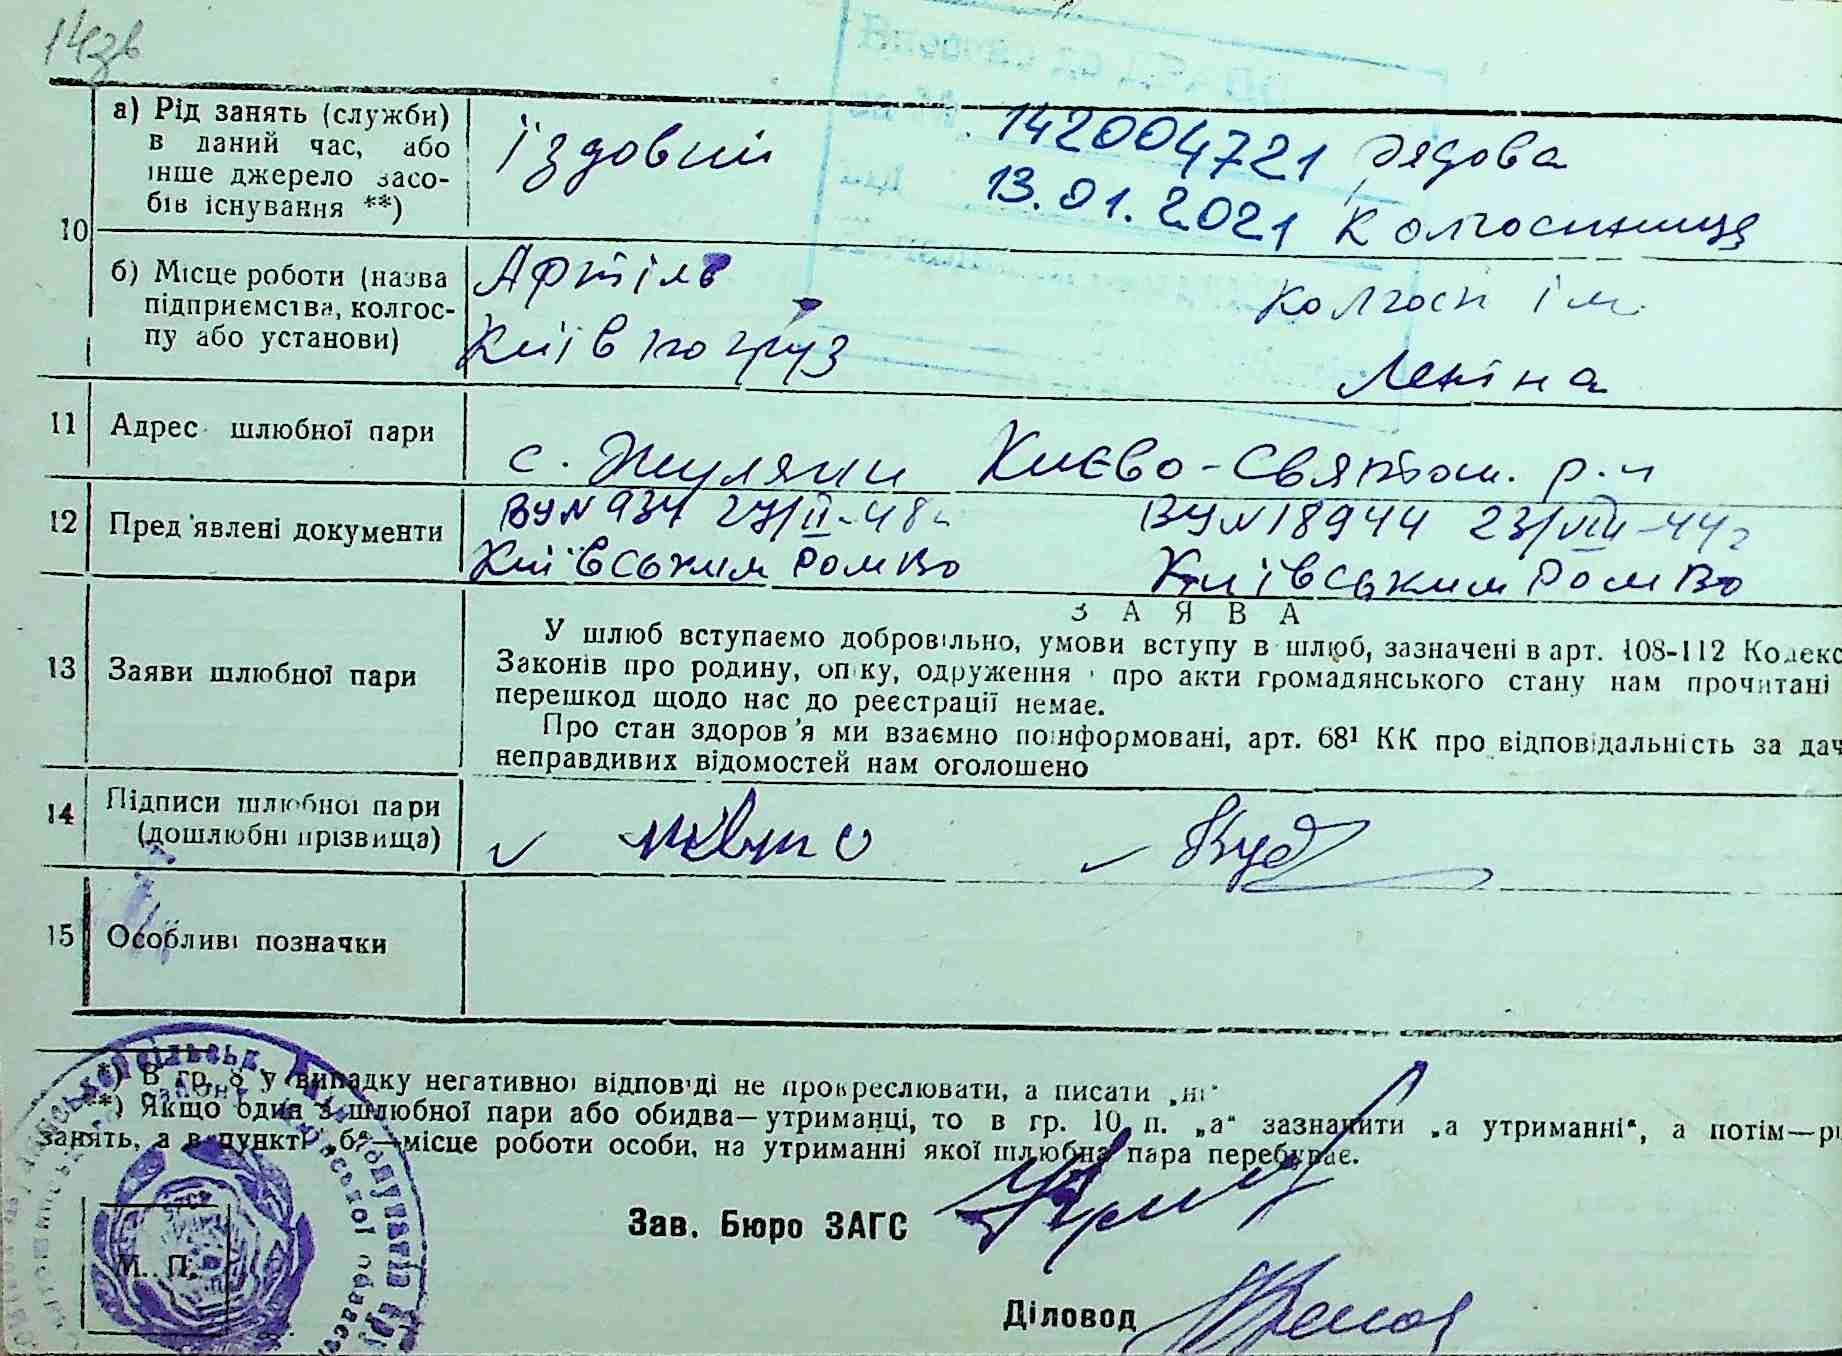 14зв
а) Рід занять (служби)
в даний час, або
інше джерело засо-
бів існування **)
їздовий
142004721
13.01.2021
рядова
колгоспниця
10
б) Місце роботи (назва
підприємства, колгос-
пу або установи)
Артіль
Київ
колгосп ім.
Леніна
11 Адрес шлюбної пари
с. Жуляни Києво-Святош. р-н
12 Пред'явлені документи
ВУ № 934 27/II-48
Київським РОМ
ВУ № 18944 23/VIII-44г
Київським РОМ
13 Заяви шлюбної пари
ЗАЯВА
У шлюб вступаємо добровільно, умови вступу в шлюб, зазначені в арт. 108-112 Кодекс
Законів про родину, опіку, одруження і про акти громадянського стану нам прочитані
перешкод щодо нас до реєстрації немає.
Про стан здоров'я ми взаємно поінформовані, арт. 68¹ КК про відповідальність за дач
неправдивих відомостей нам оголошено
14 Підписи шлюбної пари
(дошлюбні прізвища)
15 Особливі позначки
*) В гр. 8 у випадку негативної відповіді не прокреслювати, а писати „ні"
**) Якщо один з шлюбної пари або обидва—утриманці, то в гр. 10 п. „а" зазначити „а утриманні", а потім—рі
занять, а в пункті „б"—місце роботи особи, на утриманні якої шлюбна пара перебуває.
Зав. Бюро ЗАГС
М. П.
Діловод